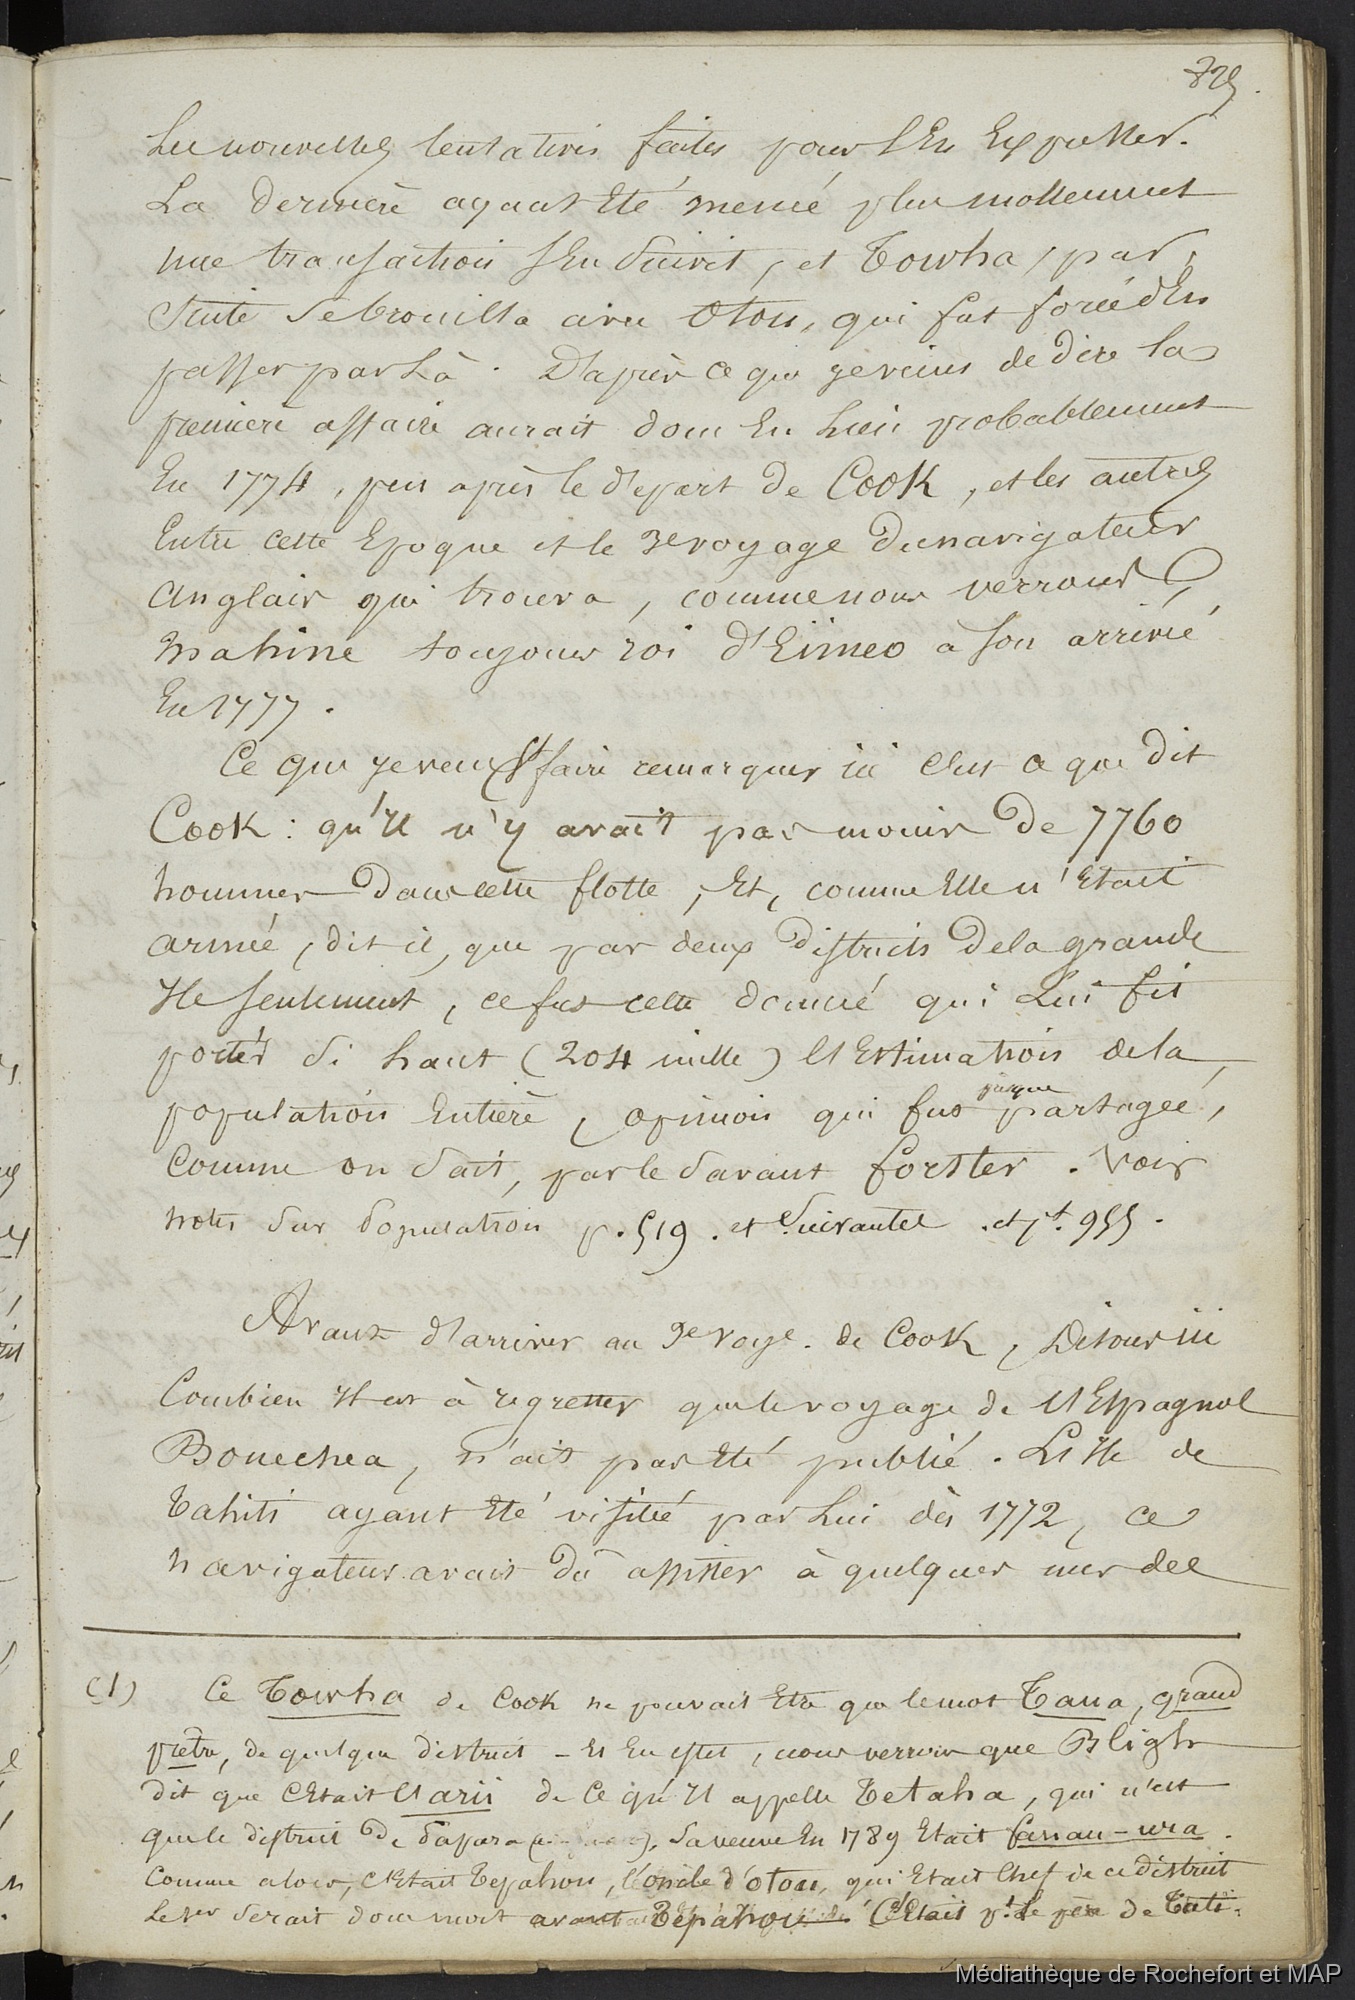 829.
les nouvelles tentatives faites pour l'En Expulser.
La derniere ayant Eté menée plus mollement
une transaction s'En suivit, et Towha, par
suite se brouilla avec Otou, qui fut forcé d'En
passer par Là. D'après ce que je viens de dire la
premiere affaire aurait donc Eu Lieu probablement
En 1774, peu après le départ de Cook, et les autres
Entre cette Epoque et le 3e voyage du navigateur
anglais qui trouva, comme nous verrons,
Mahine toujours roi d'Eimeo a son arrivée
En 1777.
Ce que je veux faire remarquer ici c'est ce que dit
Cook: qu'Il n'y avait pas moins de 7760
hommes dans cette flotte, Et, comme Elle n'Etait
armée, dit il, que par deux districts de la grande
Ile seulement, ce fut cette donnée qui Lui fit
porter si haut (204 mille) l'Estimation de la
population Entière, opinion qui fut presque partagée,
Comme on sait, par le savant forster. Voir
notes sur population p. 519. et suivantes. et pt. 955.
Avant d'arriver au 3e voye. de Cook, Disons ici
Combien Il est à regretter que le voyage de l'Espagnol
Bonechea, n'ait pas Eté publié. L'Ile de
Tahiti ayant Eté visitée par Lui dès 1772, ce
navigateur avait dû assister à quelques unes des
(1) Ce Towha de Cook ne pouvait Etre que le mot Taua, grand
pretre, de quelque district - Et En effet, nous verrons que Bligh
dit que c'Etait l'arii de ce qu'Il appelle Tetaha, qui n'est
que le district de Papara. Sa veuve En 1789 Etait fanau-ura.
Comme alors, c'Etait Tepahou, l'oncle d'Otou, qui Etait chef de ce district
Le 1er serait donc mort avant Tepahou C'Etait pt. le père de Tati.
Médiathèque de Rochefort et MAP